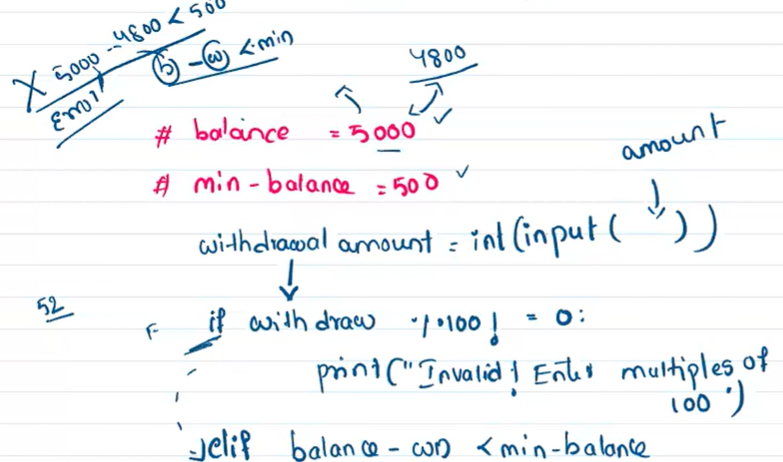 5000 - 4800 < 500
X
Error
b - w < min
4800
# balance = 5000
# min-balance = 500
amount
withdrawal amount = int(input( ))
52
F
if withdraw %100! = 0:
print("Invalid! Enter multiples of
100")
elif balance - wD < min-balance